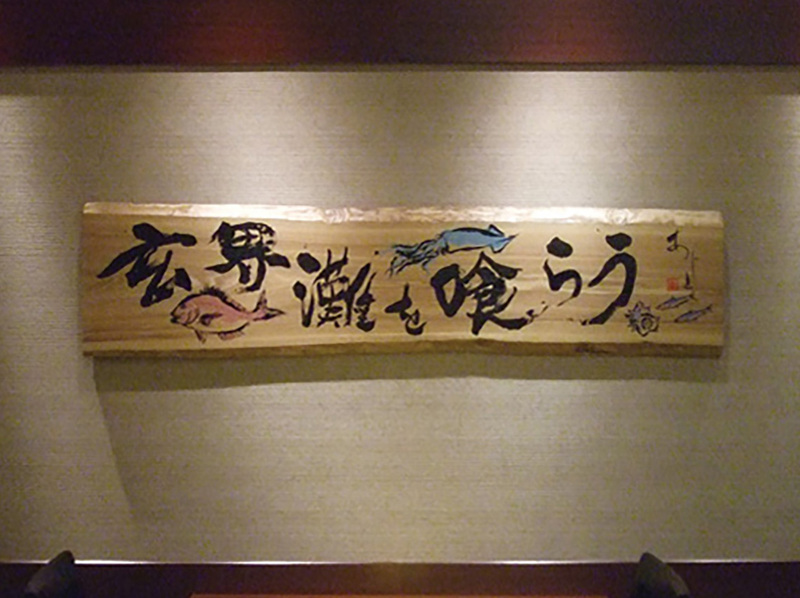 玄界灘を喰らう